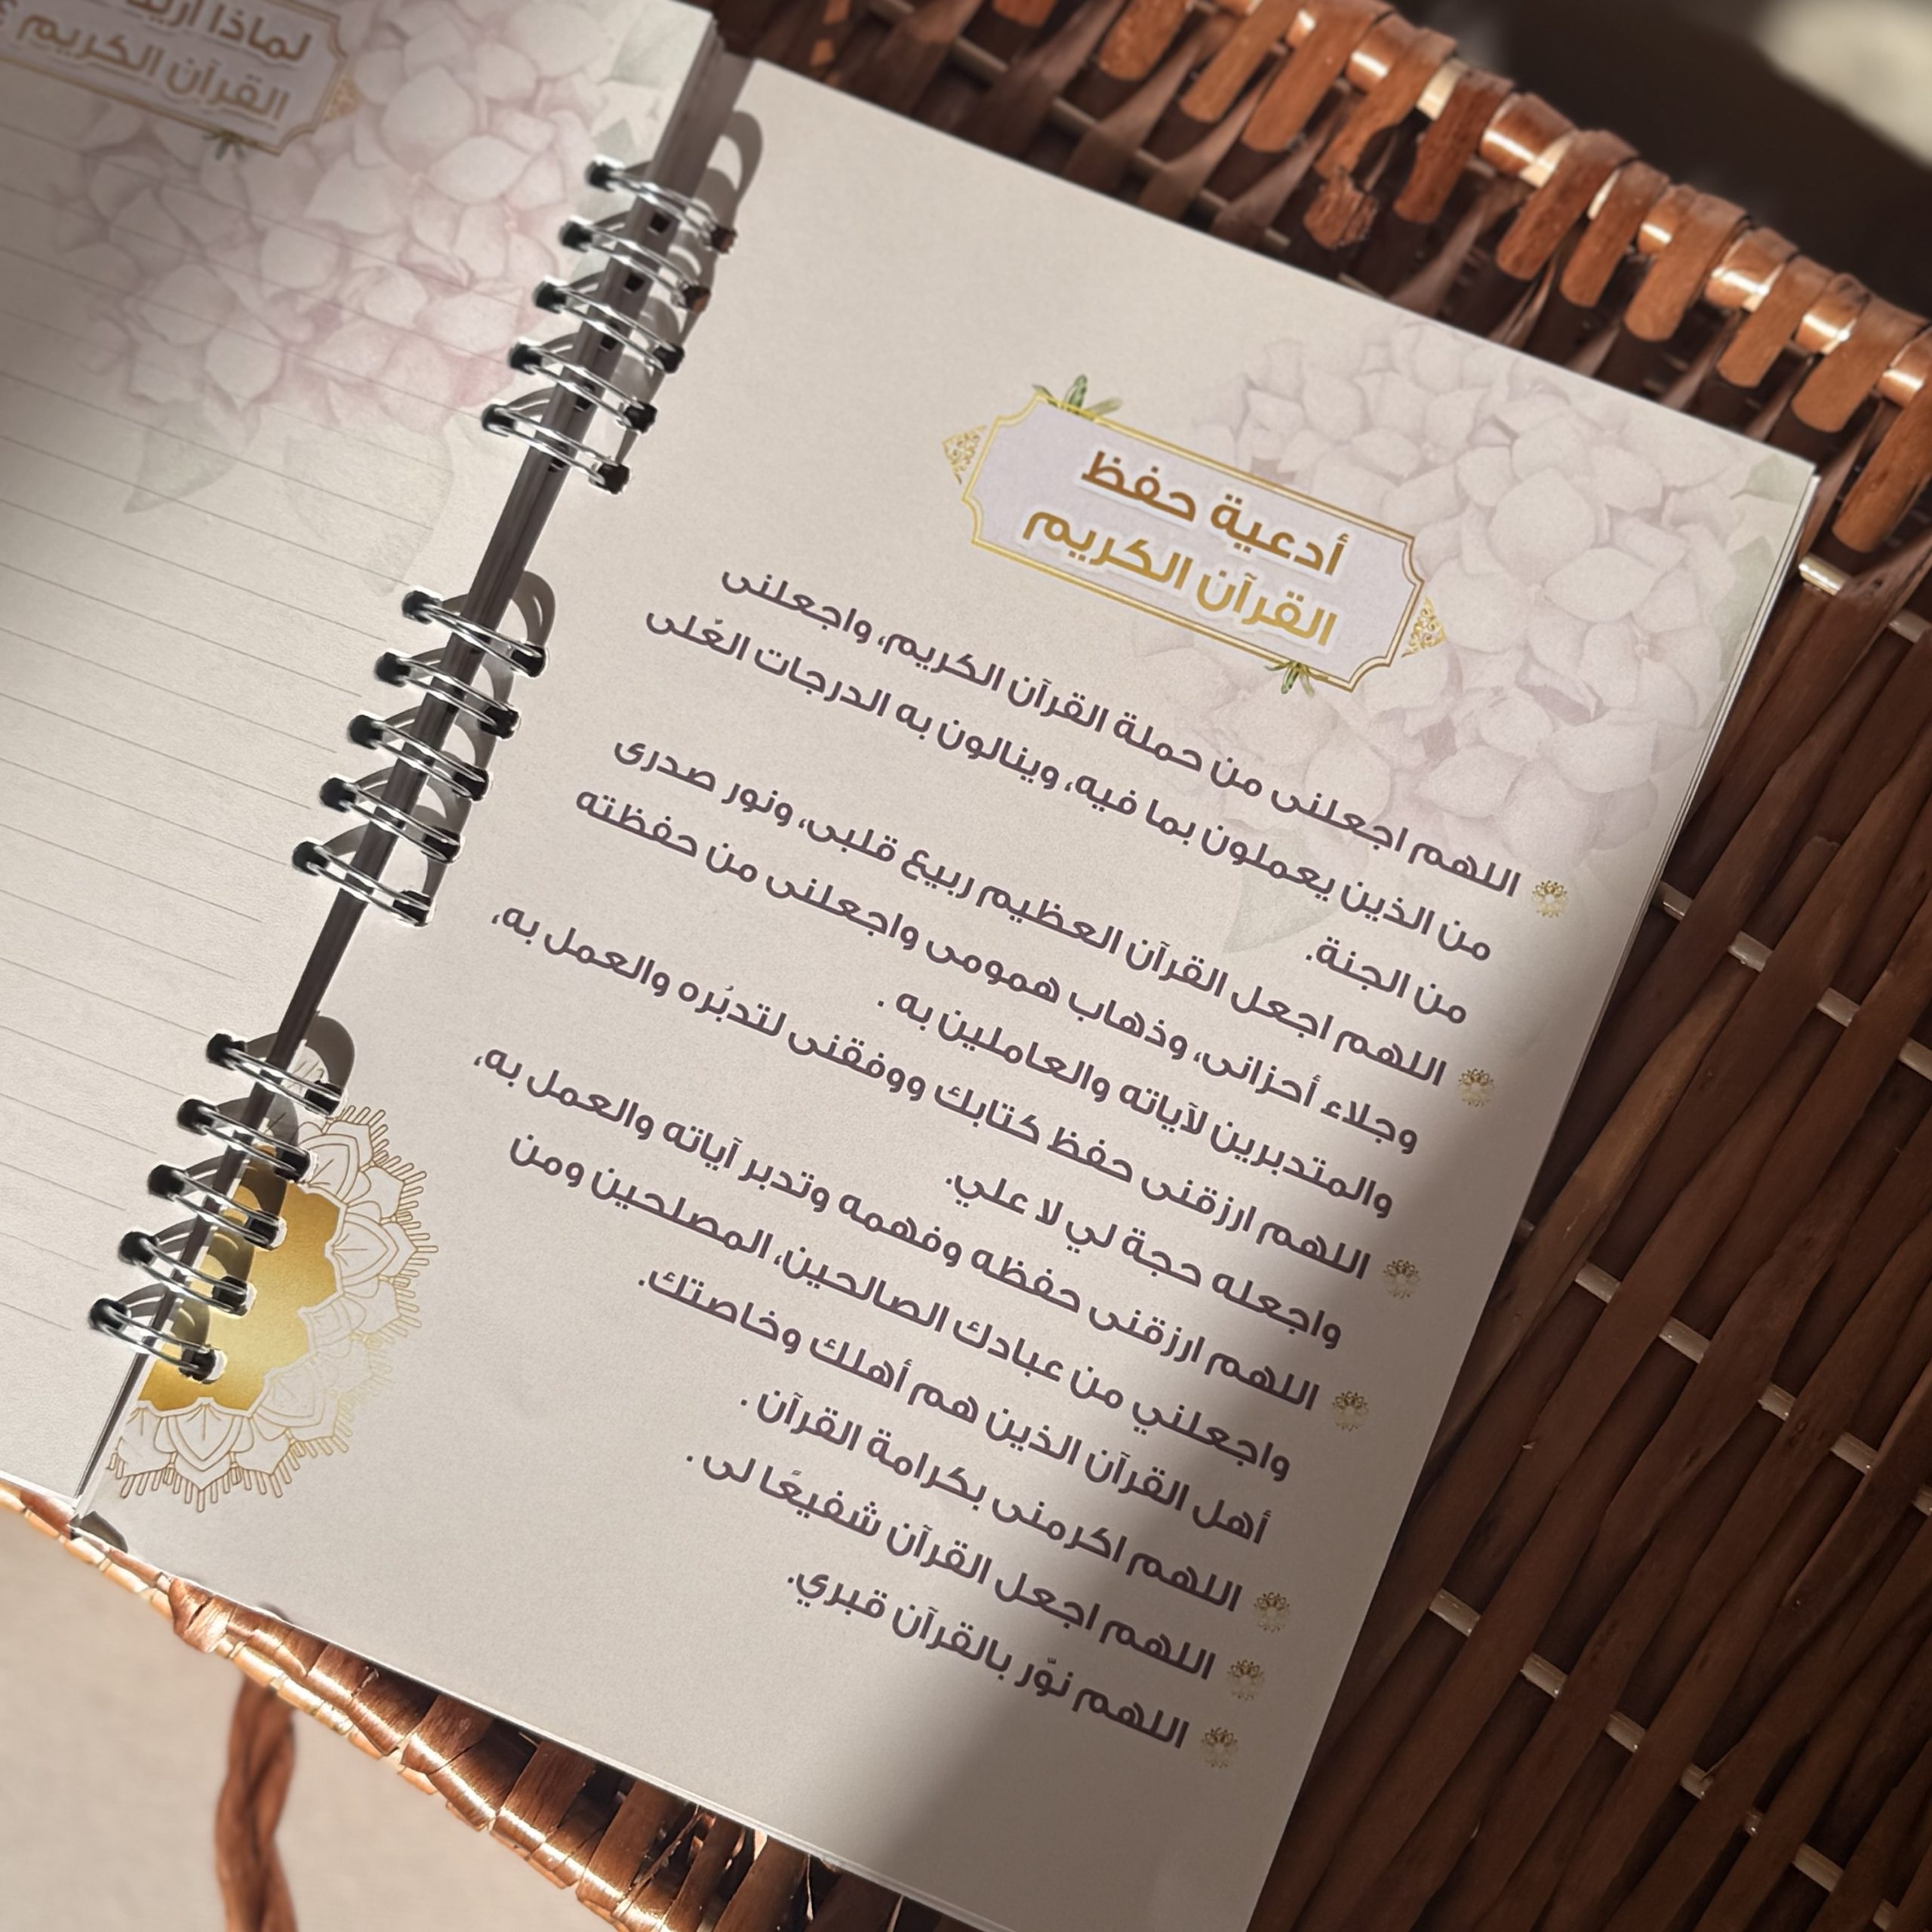 أدعية حفظ
القرآن الكريم
اللهم اجعلنى من حملة القرآن الكريم، واجعلنى
من الذين يعملون بما فيه، وينالون به الدرجات العُلى
من الجنة.
اللهم اجعل القرآن العظيم ربيع قلبى، ونور صدرى
وجلاء أحزانى، وذهاب همومى واجعلنى من حفظته
والمتدبرين لآياته والعاملين به .
اللهم ارزقنى حفظ كتابك ووفقنى لتدبُره والعمل به،
واجعله حجة لي لا علي.
اللهم ارزقنى حفظه وفهمه وتدبر آياته والعمل به،
واجعلني من عبادك الصالحين، المصلحين ومن
أهل القرآن الذين هم أهلك وخاصتك.
اللهم اكرمنى بكرامة القرآن .
اللهم اجعل القرآن شفيعًا لى .
اللهم نوّر بالقرآن قبري.
لماذا أريد
القرآن الكريم ؟